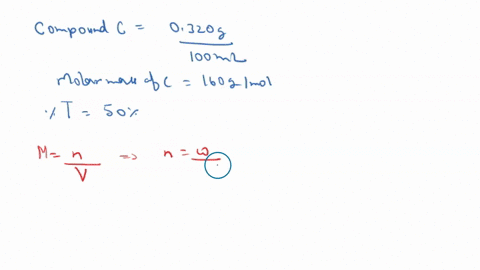 Compound C = 0.320g
100mL
Molar mass of C = 160g/mol
% T = 50%
M = n => n = w
V